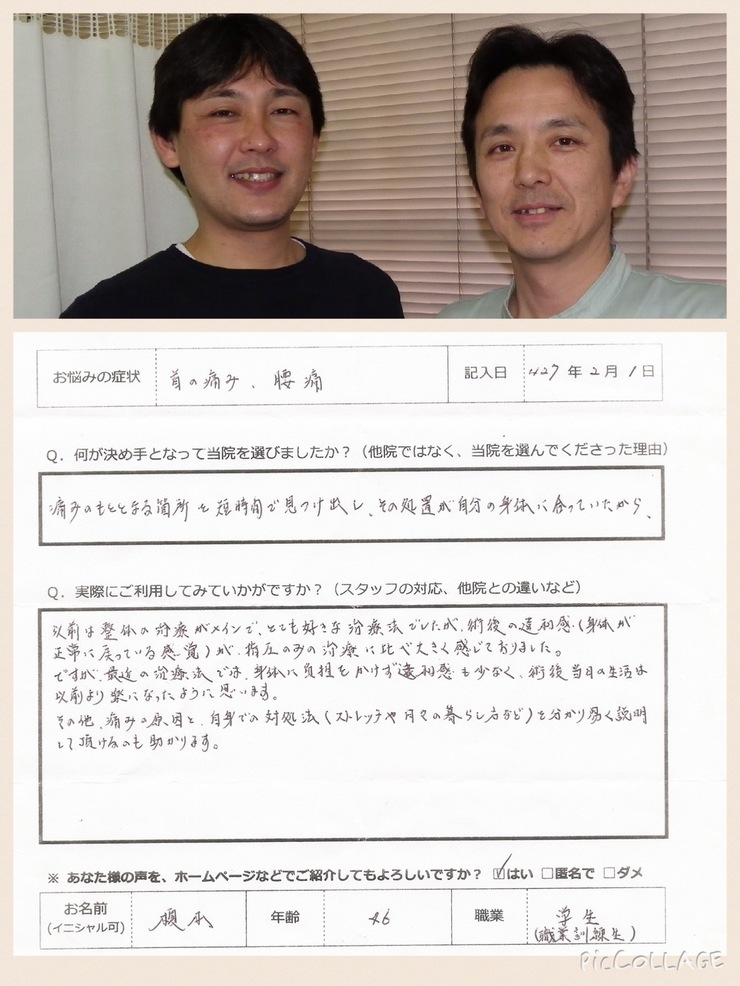 お悩みの症状 首の痛み、腰痛 記入日 H27年2月1日
Q. 何が決め手となって当院を選びましたか？（他院ではなく、当院を選んでくださった理由）
痛みのもととなる箇所を短時間で見つけ出し、その処置が自分の身体に合っていたから、
Q. 実際にご利用してみていかがですか？（スタッフの対応、他院との違いなど）
以前は整体の治療がメインで、とても好きな治療法でしたが、術後の違和感（身体が
正常に戻っている感覚）が、指圧のみの治療に比べ大きく感じておりました。
ですが、最近の治療法では、身体に負担をかけず違和感も少なく、術後当日の生活は
以前より楽になったように思います。
その他、痛みの原因と、自身での対処法（ストレッチや日々の暮らし方など）を分かり易く説明
して頂けるのも助かります。
※ あなた様の声を、ホームページなどでご紹介してもよろしいですか？ ☑はい □匿名で □ダメ
お名前 榎本 年齢 46 職業 学生
（イニシャル可） （職業訓練生）
PicCOLLAGE